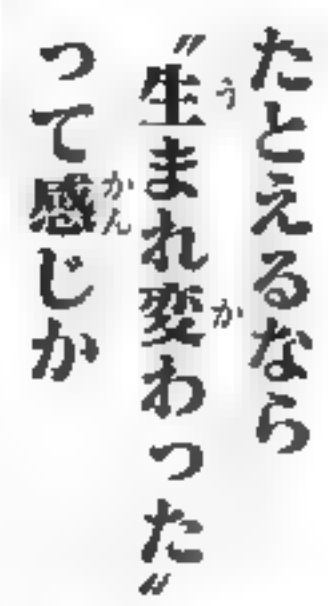 たとえるなら
〝生まれ変わった〟
って感じか